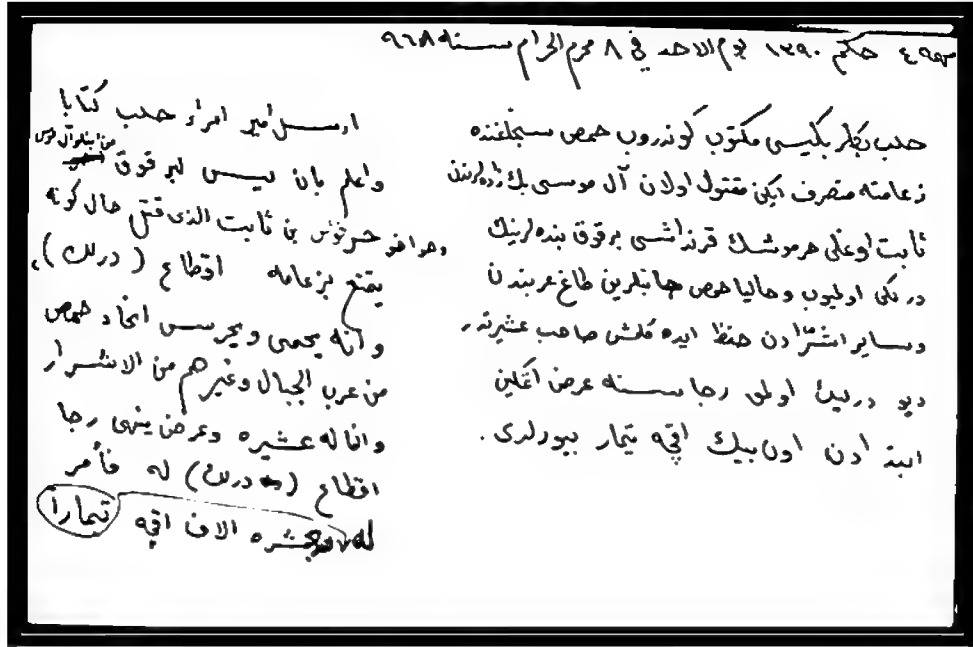 حكم ١٣٩٠ يوم الاحد في ٨ محرم الحرام سنه ٩٦٨
حلب بكلر بكيسى مكتوب كوندروب حمص سنجاغنده
زعامته متصرف ايكن مقتول اولان آل موسى بك
ثابت اوغلى حرموشك قرنداشى برقوق بنده لرينك
اوليوب وحاليا حمص جانبلرين طاغ عربندن
وساير اشرّادن حفظ ايده كلمش صاحب عشيرتدر
ديو ديرلك اولمق رجاسنه عرض اتمكين
ابتدادن اون بيك اقچه تيمار بيورلدى.
ارسل امير امراء حلب كتابا
واعلم بان ليس لبرقوق من ابناء آل موسى
وهو اخو حرفوش بن ثابت الذى قتل حال كونه
يتمتع بزعامه اقطاع (درلك)،
وانه يحمى ويحرس انحاء حمص
من عرب الجبال وغيرهم من الاشرار
وانا له عشيره وعرض ينهى رجا
اقطاع (درلك) له فأمر
له بعشره الاف اقچه تيمارا